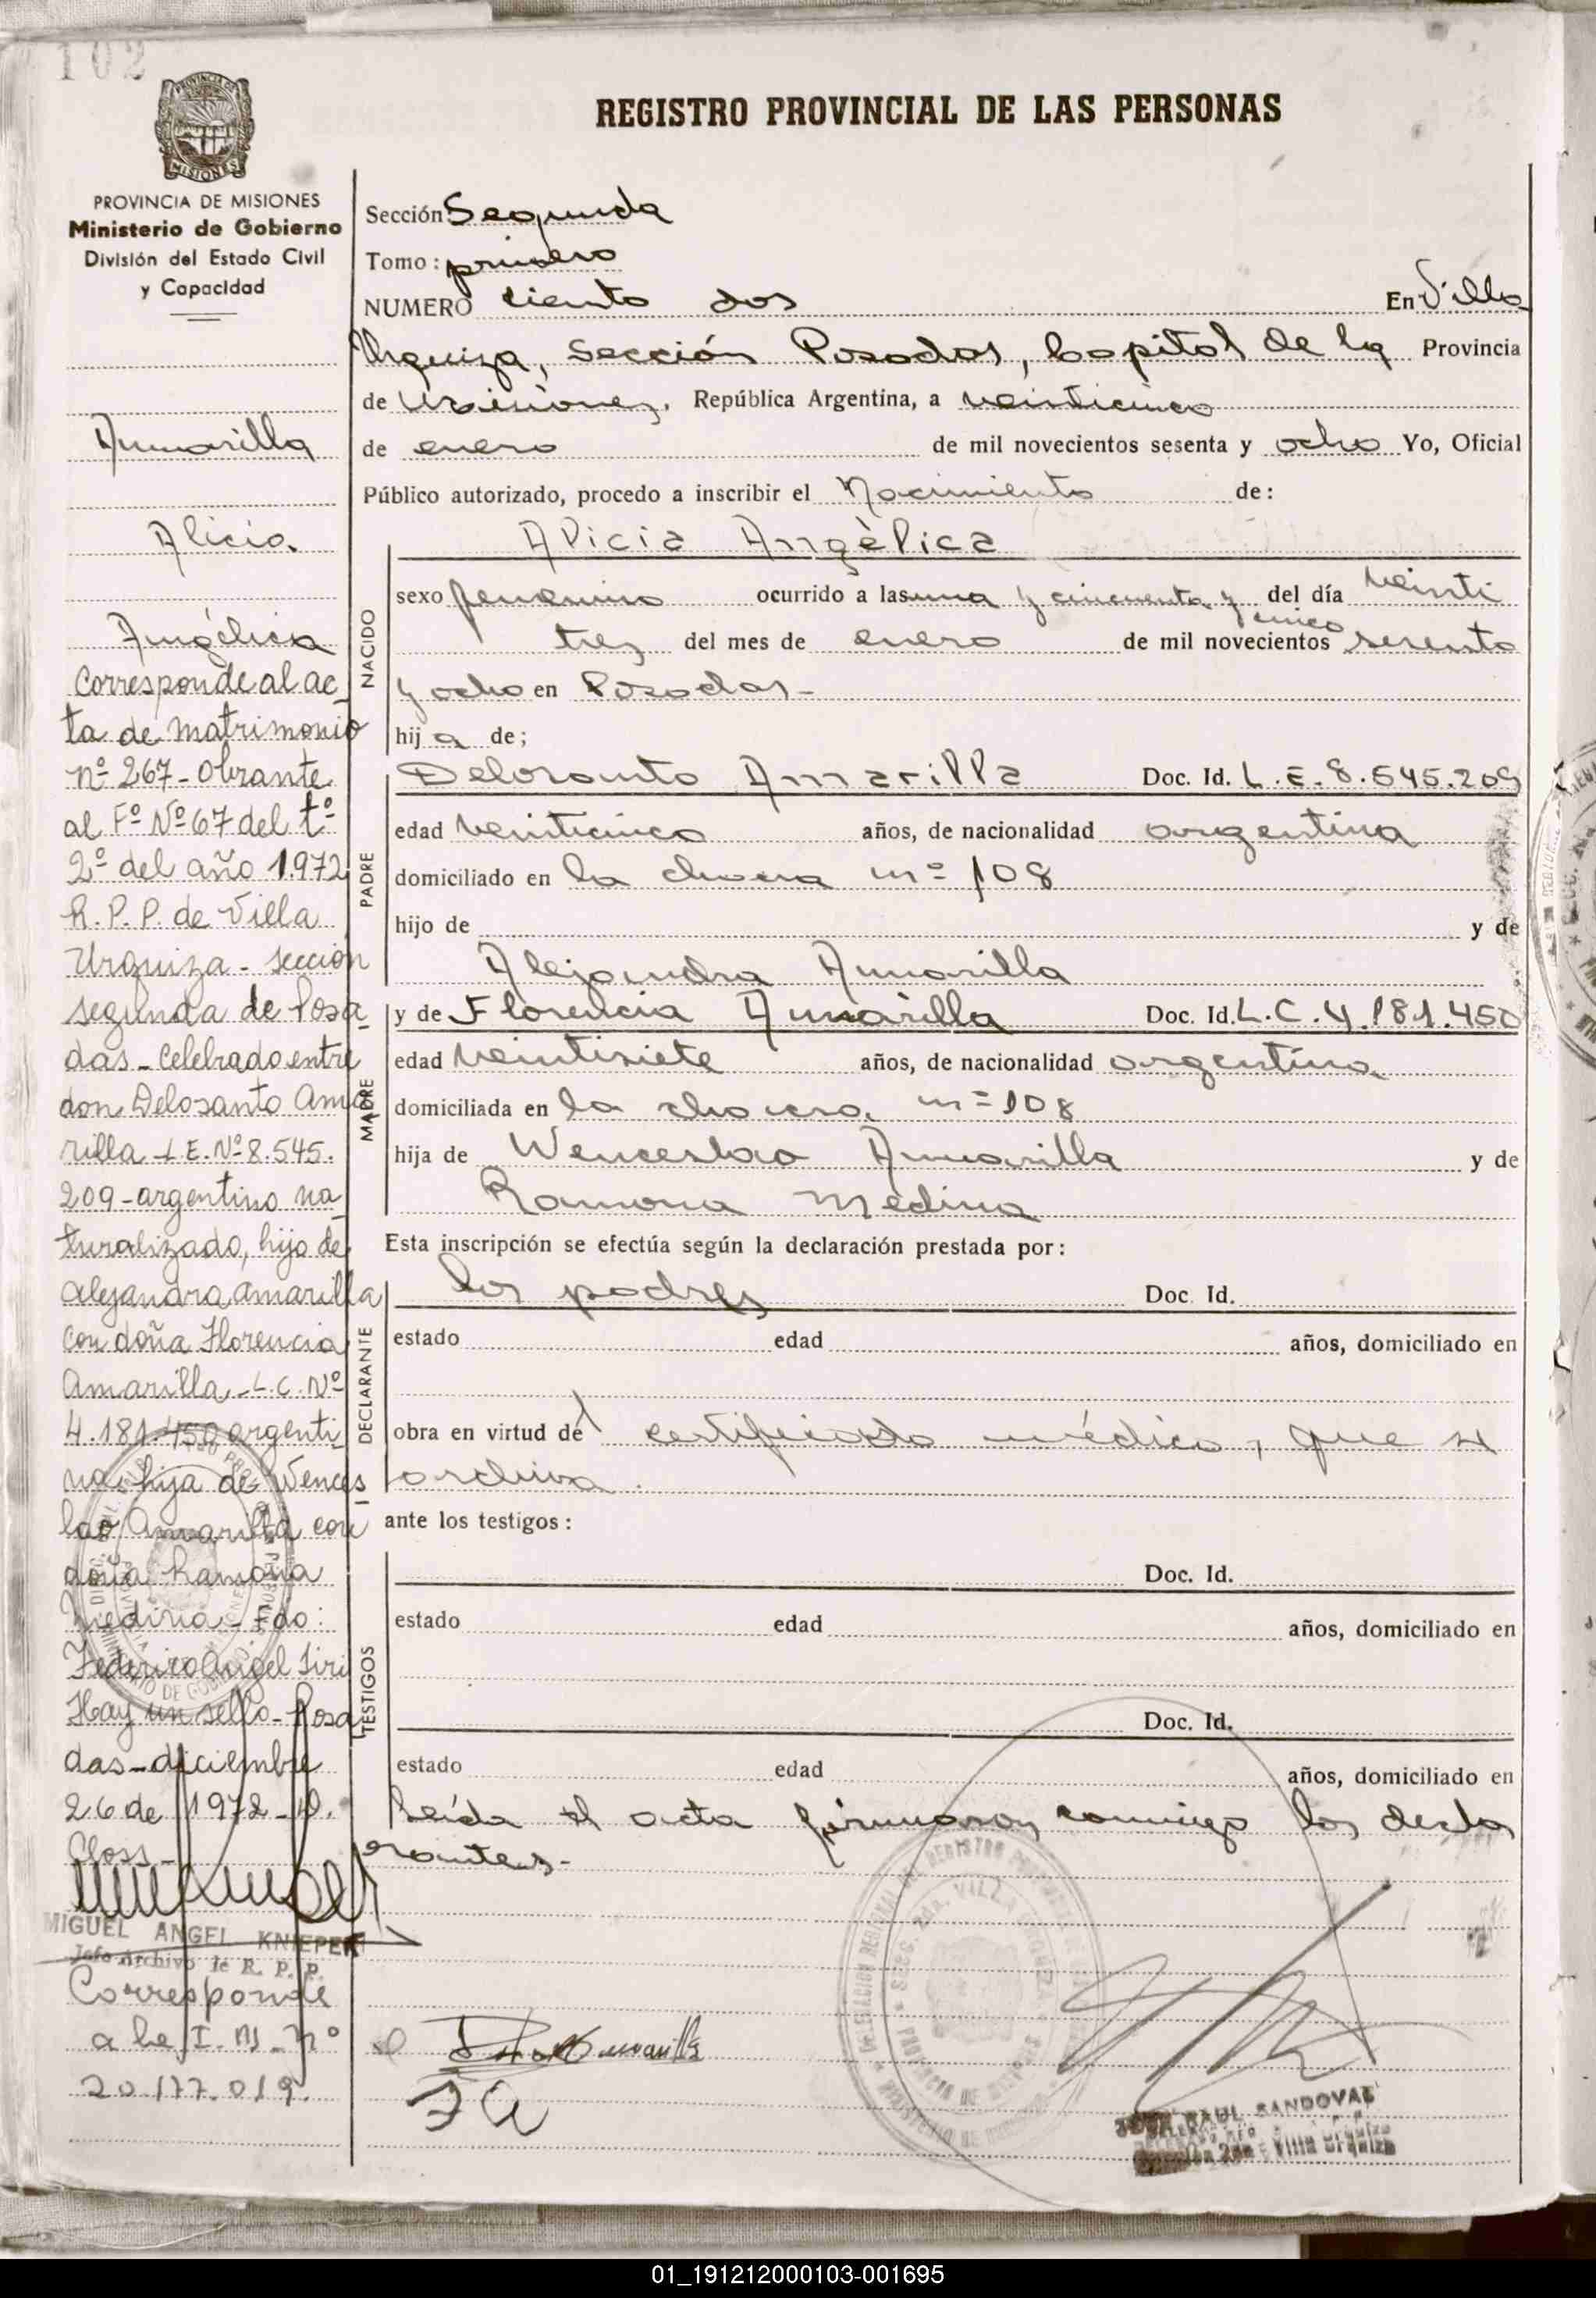 102
REGISTRO PROVINCIAL DE LAS PERSONAS
PROVINCIA DE MISIONES
MISIONES
PROVINCIA DE MISIONES
Ministerio de Gobierno
División del Estado Civil
y Capacidad
Amarilla
Alicia
Angélica
Corresponde al ac-
ta de matrimonio
nº 267 - Obrante
al Fº Nº 67 del tº
2º del año 1.972
R. P. P. de Villa
Urquiza - sección
segunda de Posa
das - Celebrado entre
don Delosanto Ama
rilla - L.E. Nº 8.545.
209 - argentino na-
turalizado, hijo de
Alejandra Amarilla
con doña Florencia
Amarilla - L.C. Nº
4.181.450 argenti
na hija de Wences
lao Amarilla con
doña Ramona
Medina - Fdo:
Federico Angel Siri
Hay un sello - Posa
das - diciembre
26 de 1972 - D.
Closs -
MIGUEL ANGEL KNIEPER
Jefe Archivo de R. P. P.
Corresponde
a la I. M. Nº
20.177.019.
Sección Segunda
Tomo: primero
NUMERO ciento dos En Villa
Urquiza, Sección Posadas, Capital de la Provincia
de Misiones, República Argentina, a veinticinco
de enero de mil novecientos sesenta y ocho Yo, Oficial
Público autorizado, procedo a inscribir el Nacimiento de:
NACIDO
Alicia Angélica
sexo femenino ocurrido a las una y cincuenta y cinco del día veinti
tres del mes de enero de mil novecientos sesenta
y ocho en Posadas -
hij a de;
PADRE
Delosanto Amarilla Doc. Id. L.E. 8.545.209
edad veinticinco años, de nacionalidad argentina
domiciliado en la chacra nº 108
hijo de y de
Alejandra Amarilla
MADRE
y de Florencia Amarilla Doc. Id. L.C. 4.181.450
edad veintisiete años, de nacionalidad argentina
domiciliada en la chacra nº 108
hija de Wenceslao Amarilla y de
Ramona Medina
Esta inscripción se efectúa según la declaración prestada por:
DECLARANTE
los padres Doc. Id.
estado edad años, domiciliado en
obra en virtud del certificado médico, que se
archiva.
ante los testigos:
TESTIGOS
Doc. Id.
estado edad años, domiciliado en
Doc. Id.
estado edad años, domiciliado en
Leída el acta firmaron conmigo los decla
rantes -
Amarilla
F A
RAUL SANDOVAL
Villa Urquiza
01_191212000103-001695